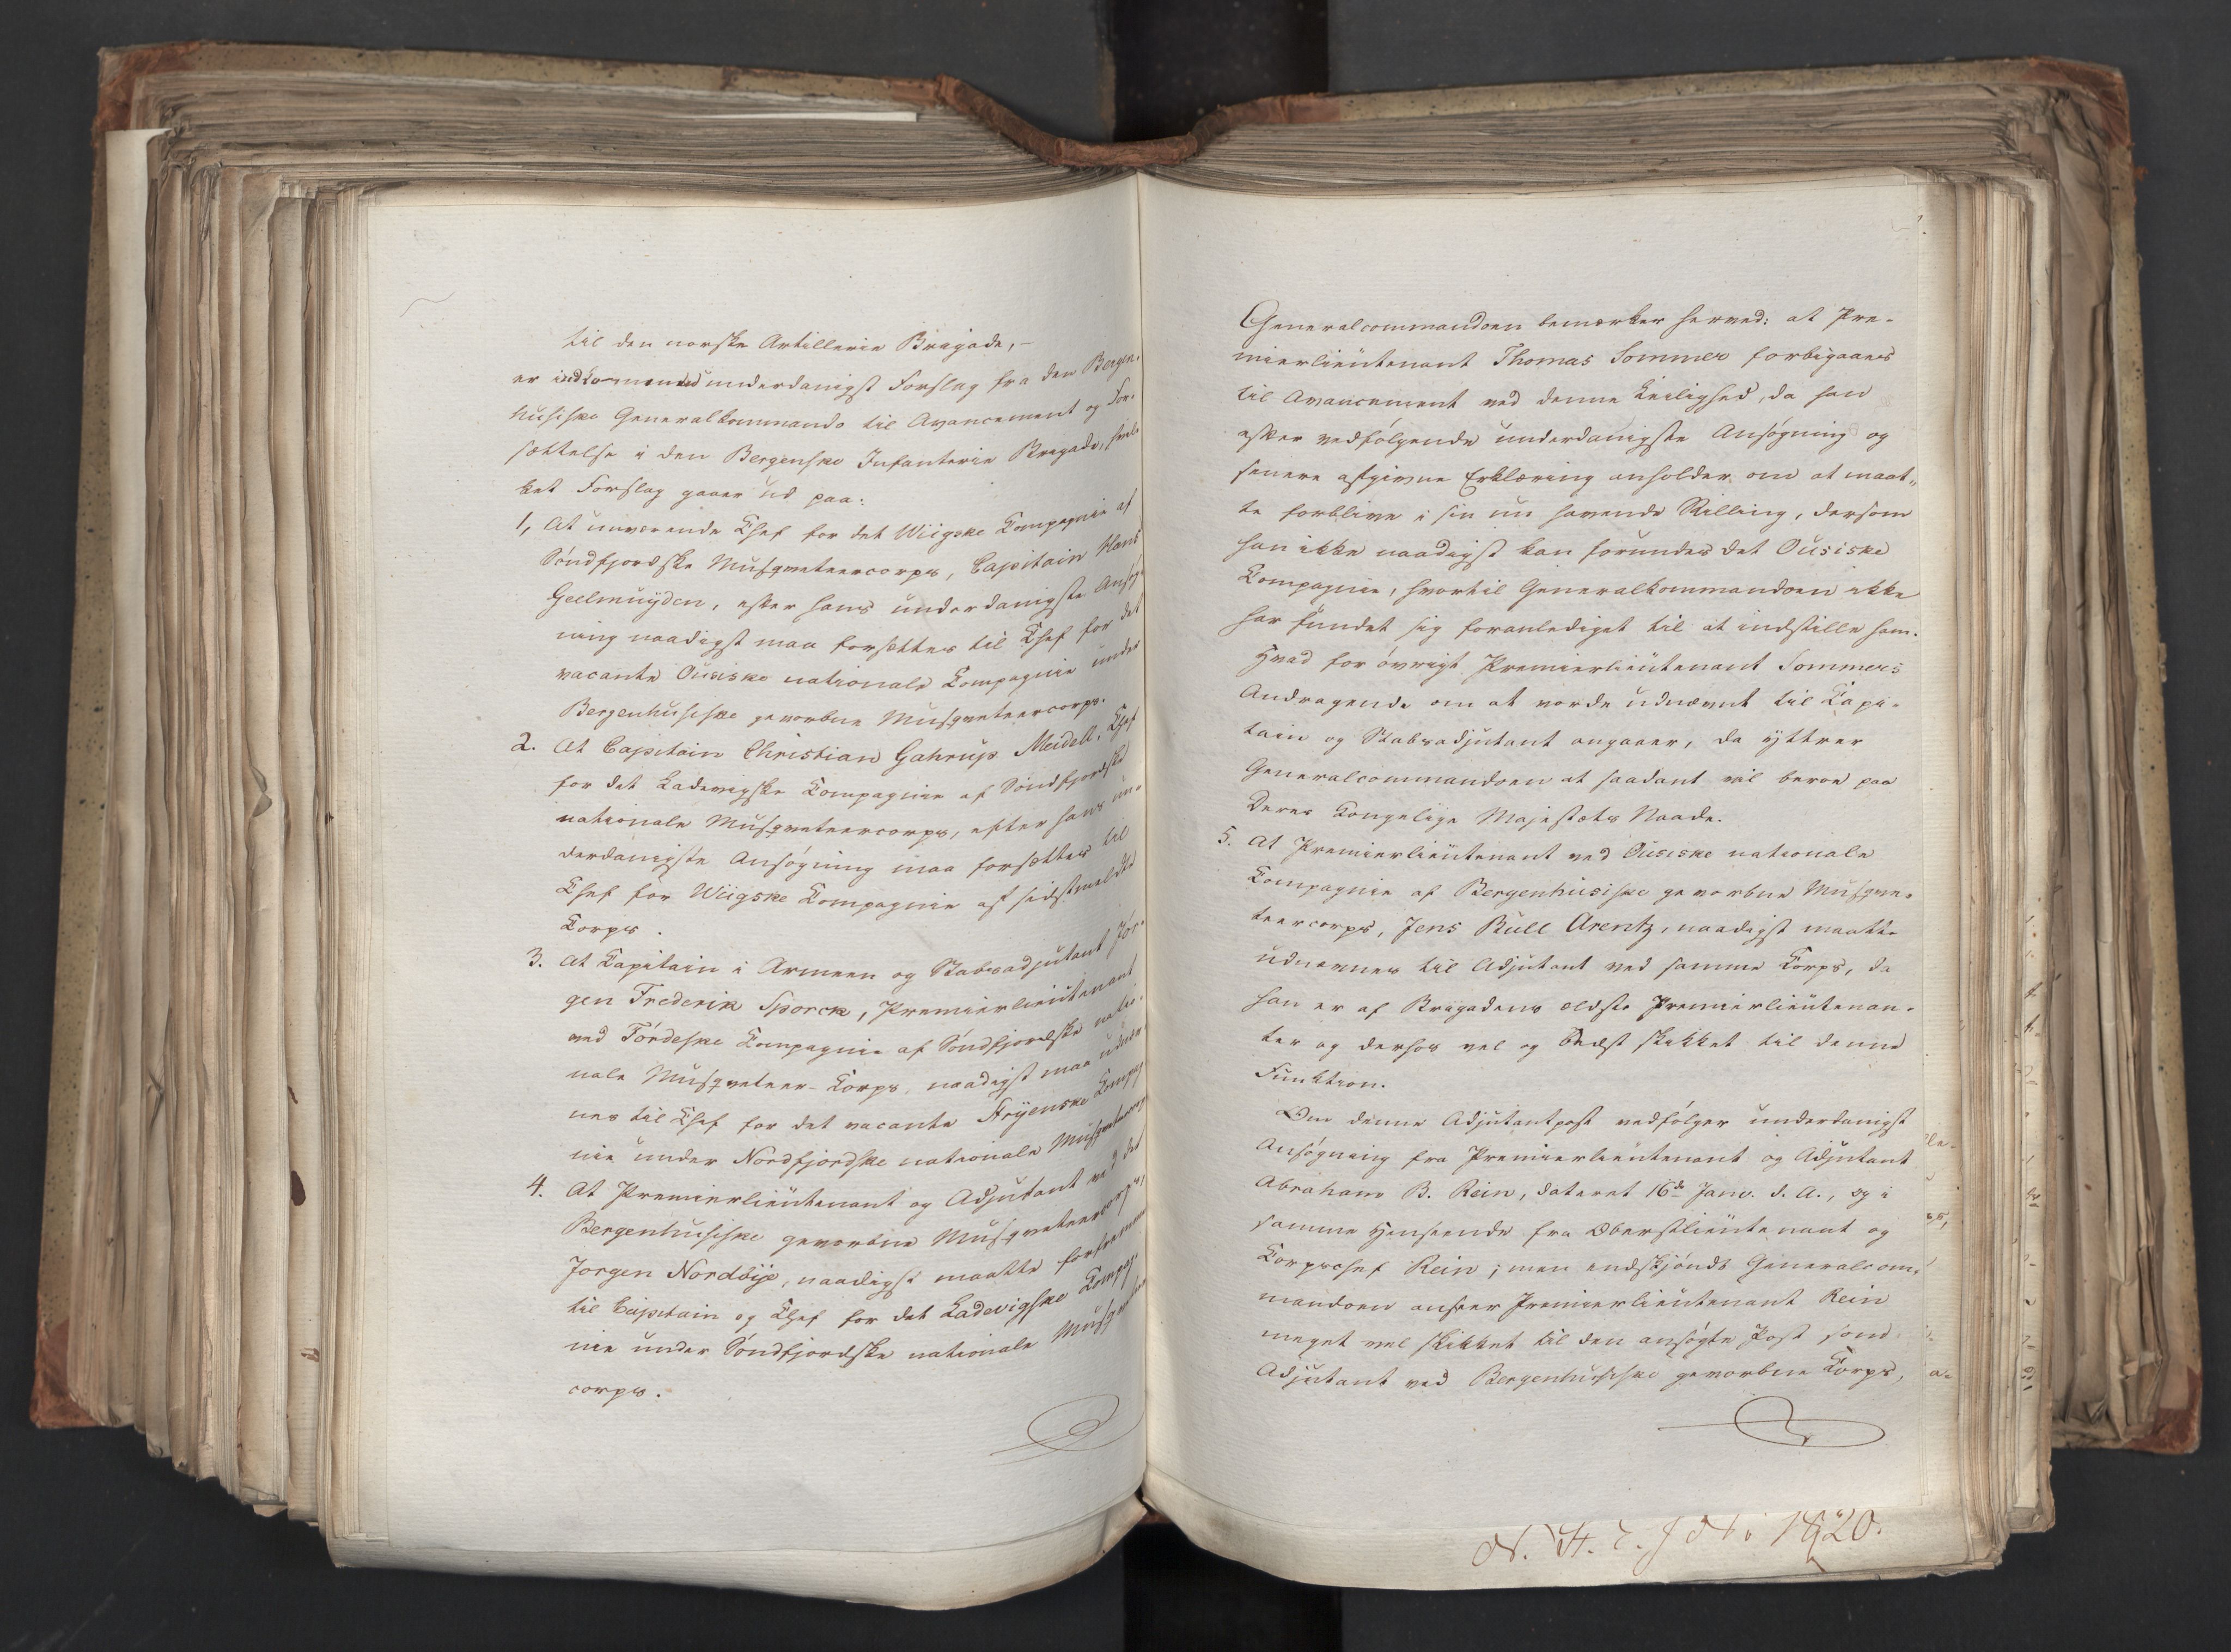 til den norske Artillerie Brigade, –
er indkommended underdanigst Forslag fra den Bergen-
husiske Generalkommando til Avancement og For-
sættelse i den Bergenske Infanterie Brigade, hvil-
ket Forslag gaaer ud paa:
1, At nuværende Chef for det Wiigske Kompagnie af
Søndfjordske Musqueteercorps, Capitain Hans
Geelmuÿden, efter hans underdanigste Ansøg-
ning naadigst maa forsættes til Chef for det
vacante Ousiske nationale Kompagnie under
Bergenhusiske gevorbne Musqueteercorps.
2. At Capitain Christian Gahrup Meidell, Chef
for det Ladevigske Kompagnie af Søndfjordske
nationale Musqueteercorps, efter hans un-
derdanigste Ansøgning maa forsættes til
Chef for Wiigske Kompagnie af sidstmeldte
Korps.
3. At Kapitain i Armeen og Stabsadjutant Jør-
gen Frederik Sporck, Premierlieutenant
ved Førdeske Kompagnie af Søndfjordske natio-
nale Musqueteer-Korps, naadigst maa udnæv-
nes til Chef for det vacante Strÿenske Kompag-
nie under Nordfjordske nationale Musqueteercorps
4. At Premierlieutenant og Adjutant ved det
Bergenhusiske gevorbne Musqueteercorps,
Jorgen Nordbije, naadigst maatte forfremmes
til Capitain og Chef for det Ladevigske Kompag-
nie under Søndfjordske nationale Musqueteer
corps.
Generalcommandoen bemærker herved: at Pre-
mierlieutenant Thomas Sommer forbigaaes
til Avancement ved denne Leilighed, da han
efter vedfølgende underdanigste Ansøgning og
senere afgivne Erklæring anholder om at maat-
te forblive i sin nu havende Stilling, dersom
han ikke naadigst kan forundes det Ousiske
Kompagnie, hvortil Generalkommandoen ikke
har fundet sig foranlediget til at indstille ham.
Hvad for øvrigt Premierlieutenant Sommers
Andragende om at vorde udnævnt til Kapi-
tain og Stabsadjutant angaaer, da ÿttrer
Generalcommandoen at saadant vil beroe paa
Deres Kongelige Majestæts Naade.
5. At Premierlieutenant ved Ousiske nationale
Kompagnie af Bergenhusiske gevorbne Musque-
teercorps, Jens Bull Arentz, naadigst maatte
udnævnes til Adjutant ved samme Korps, da
han er af Brigadens ældste Premierlieutenan-
ter og derhos vel og bedst skikket til denne
Funktion.
Om denne Adjutantpost vedfølger underdanigst
Ansøgning fra Premierlieutenant og Adjutant
Abraham B. Rein, dateret 16de Janv. d. A., og i
samme Henseende fra Oberstlieutenant og
Korpschef Rein; men endskjøndt Generalcom-
mandoen anseer Premierlieutenant Rein
meget vel skikket til den ansøgte Post som
Adjutant ved Bergenhusiske gevorbne Korps,
1820.